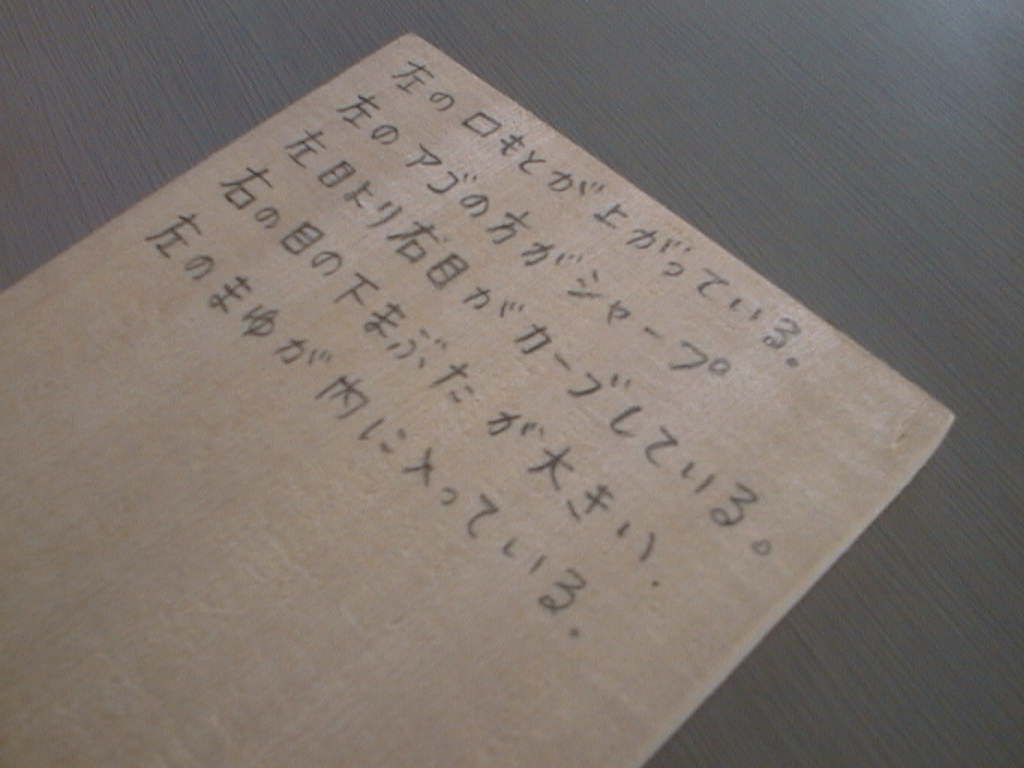 左の口もとが上がっている。
左のアゴの方がシャープ
左目より右目がカーブしている。
右の目の下まぶたが大きい.
左のまゆが内に入っている.